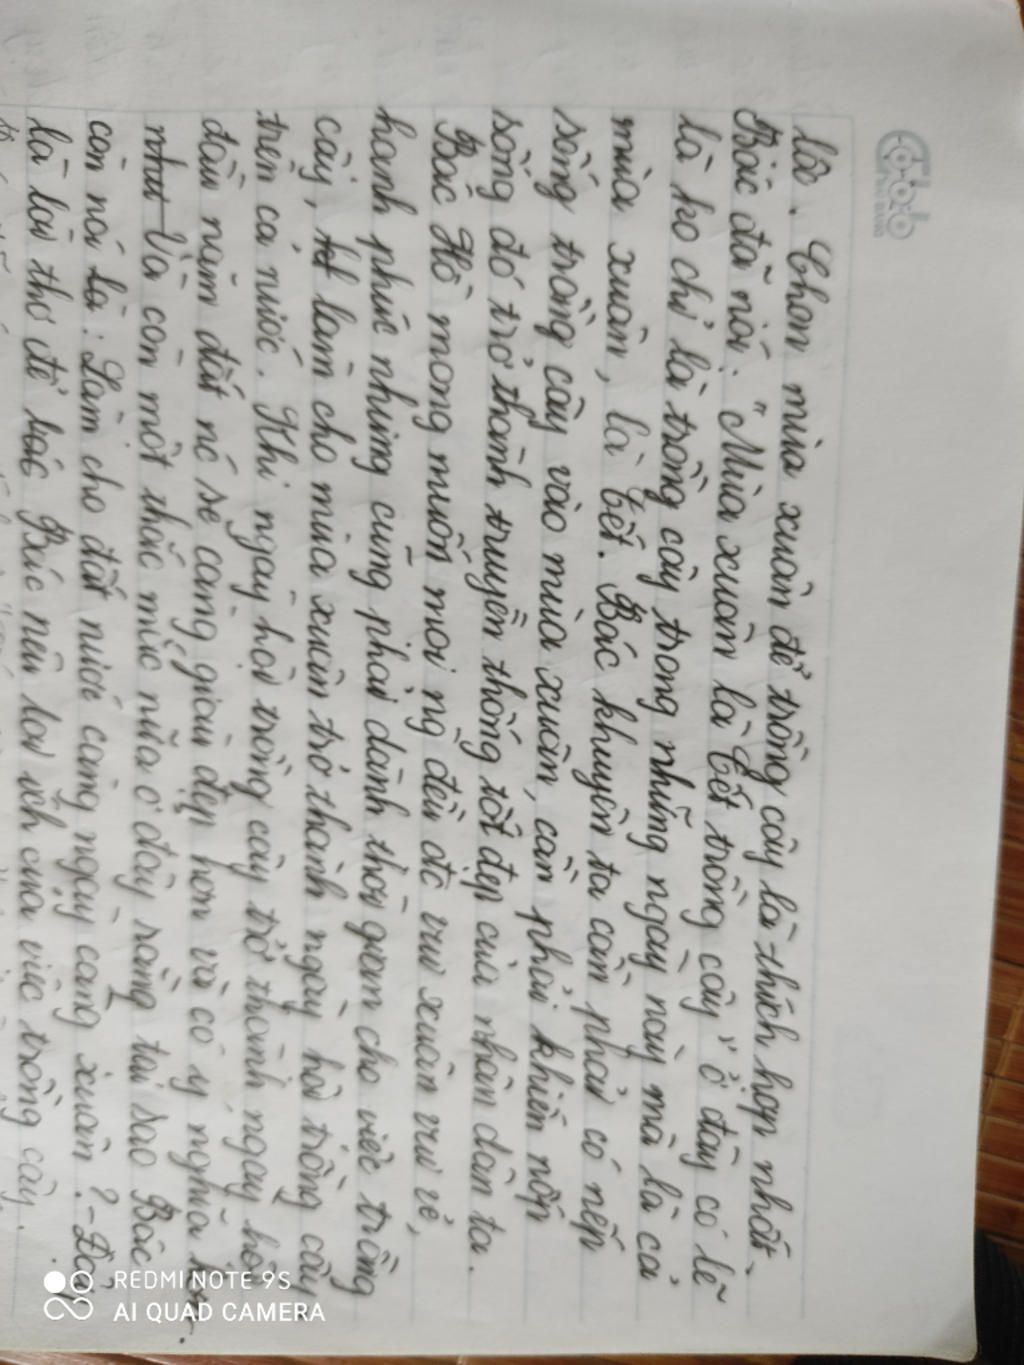 lôc. Chon mùa xuân để trồng cây là thích hợp nhất.
Bác đã nói: "Mùa xuân là Tết trồng cây", ở đây có lẽ
là ko chỉ là trồng cây trong những ngày này mà là cả
mùa xuân, là tết. Bác khuyên ta cần phải có nếp
sống trồng cây vào mùa xuân, cần phải khiến nếp
sống đó trở thành truyền thống tốt đẹp của nhân dân ta.
Bác Hồ mong muốn mọi ng đều đc vui xuân vui vẻ,
hạnh phúc nhưng cũng phải dành thời gian cho việc trồng
cây, làm cho mùa xuân trở thành ngày hội trồng cây
trên cả nước. Khi ngày hội trồng cây trở thành ngày hội
đầu năm đất nc sẽ càng giàu đẹp hơn và có ý nghĩa hơn.
Và còn một thắc mắc nữa ở đây rằng tại sao Bác
còn nói là: Làm cho đất nước càng ngày càng xuân? - Đây
là lời thơ để Bác nêu lợi ích của việc trồng cây.
Cob
REDMI NOTE 9S
AI QUAD CAMERA